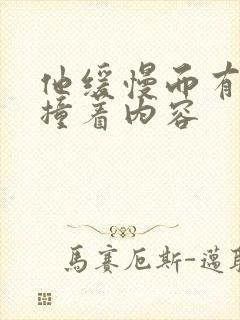 他缓慢而有
撞着内容
馬賽厄斯-邁